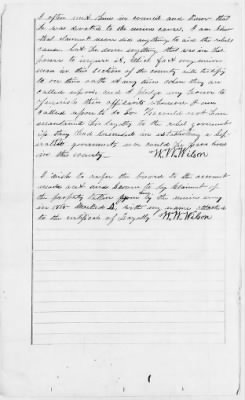 I often met him in council and know that
he was devoted to the union cause. I can say
that claimant never did anything to aid the rebel
cause. but he done everything that was in his
power to injure it, which fact any union
man in this section of the county will testify
to on their oath at any time when they are
called upon and I pledge my honor to
furnish their affidavits whenever I am
called upon to do so. He could not have
maintained his loyalty to the rebel government
if they had succeeded in establishing a sep-
arate government as he would have been
in this county.
W. W. Wilson
I wish to refer the board to the account
made out and sworn to by claimant of
the property taken from by the union army
in 186 marked D. with my name attached
to the certificate of Loyalty W. W. Wilson